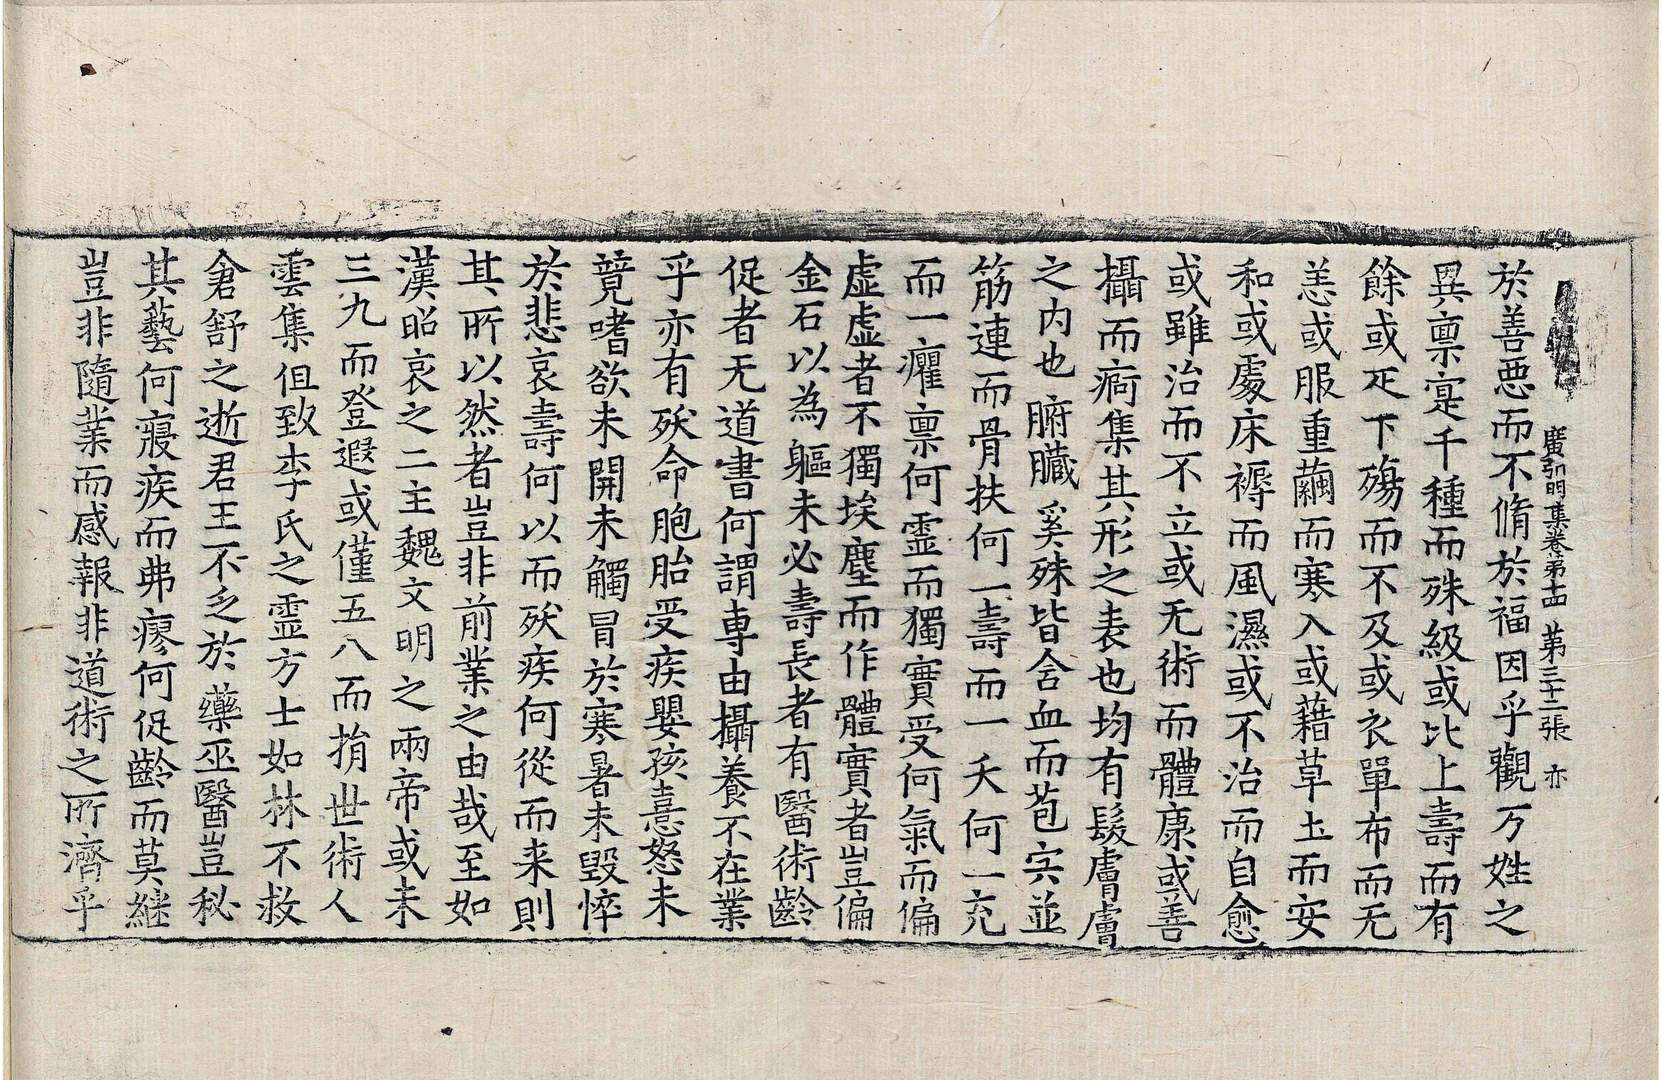 廣弘明集卷第十四　第三十二張　亦
於善惡而不脩於福因乎觀万姓之
異稟寔千種而殊級或比上壽而有
餘或疋下殤而不及或衣單布而无
恙或服重繭而寒入或藉草土而安
和或處床褥而風濕或不治而自愈
或雖治而不立或无術而體康或善
攝而痾集其形之表也均有髮膚膚
之內也腑臟奚殊皆含血而苞宍並
筋連而骨扶何一壽而一夭何一充
而一癯稟何靈而獨實受何氣而偏
虛虛者不獨埃塵而作體實者豈偏
金石以為軀未必壽長者有醫術齡
促者无道書何謂專由攝養不在業
乎亦有殀命胞胎受疾嬰孩憙怒未
競嗜欲未開未觸冒於寒暑未毀悴
於悲哀壽何以而殀疾何從而来則
其所以然者豈非前業之由哉至如
漢昭哀之二主魏文明之兩帝或未
三九而登遐或僅五八而捐世術人
雲集但致李氏之靈方士如林不救
倉舒之逝君王不乏於藥巫醫豈秘
其藝何寢疾而弗瘳何促齡而莫繼
豈非隨業而感報非道術之所濟乎